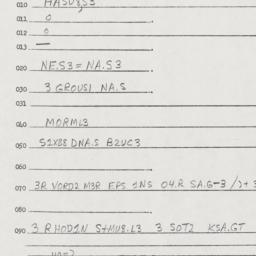 010 HASU8,S3
011 0
012 0
013 —
020 NE.S3 = NA.S3
030 3 GROUS1 NA.S
031
040 MORML3
050 S1X88 DNA.S B2UC3
060
070 3R VORD2 M3R EPS 1NS 04.R SA.G-3
080
090 3 RHOD1N S+MU8.L3 3 SOT2 KSA.GT